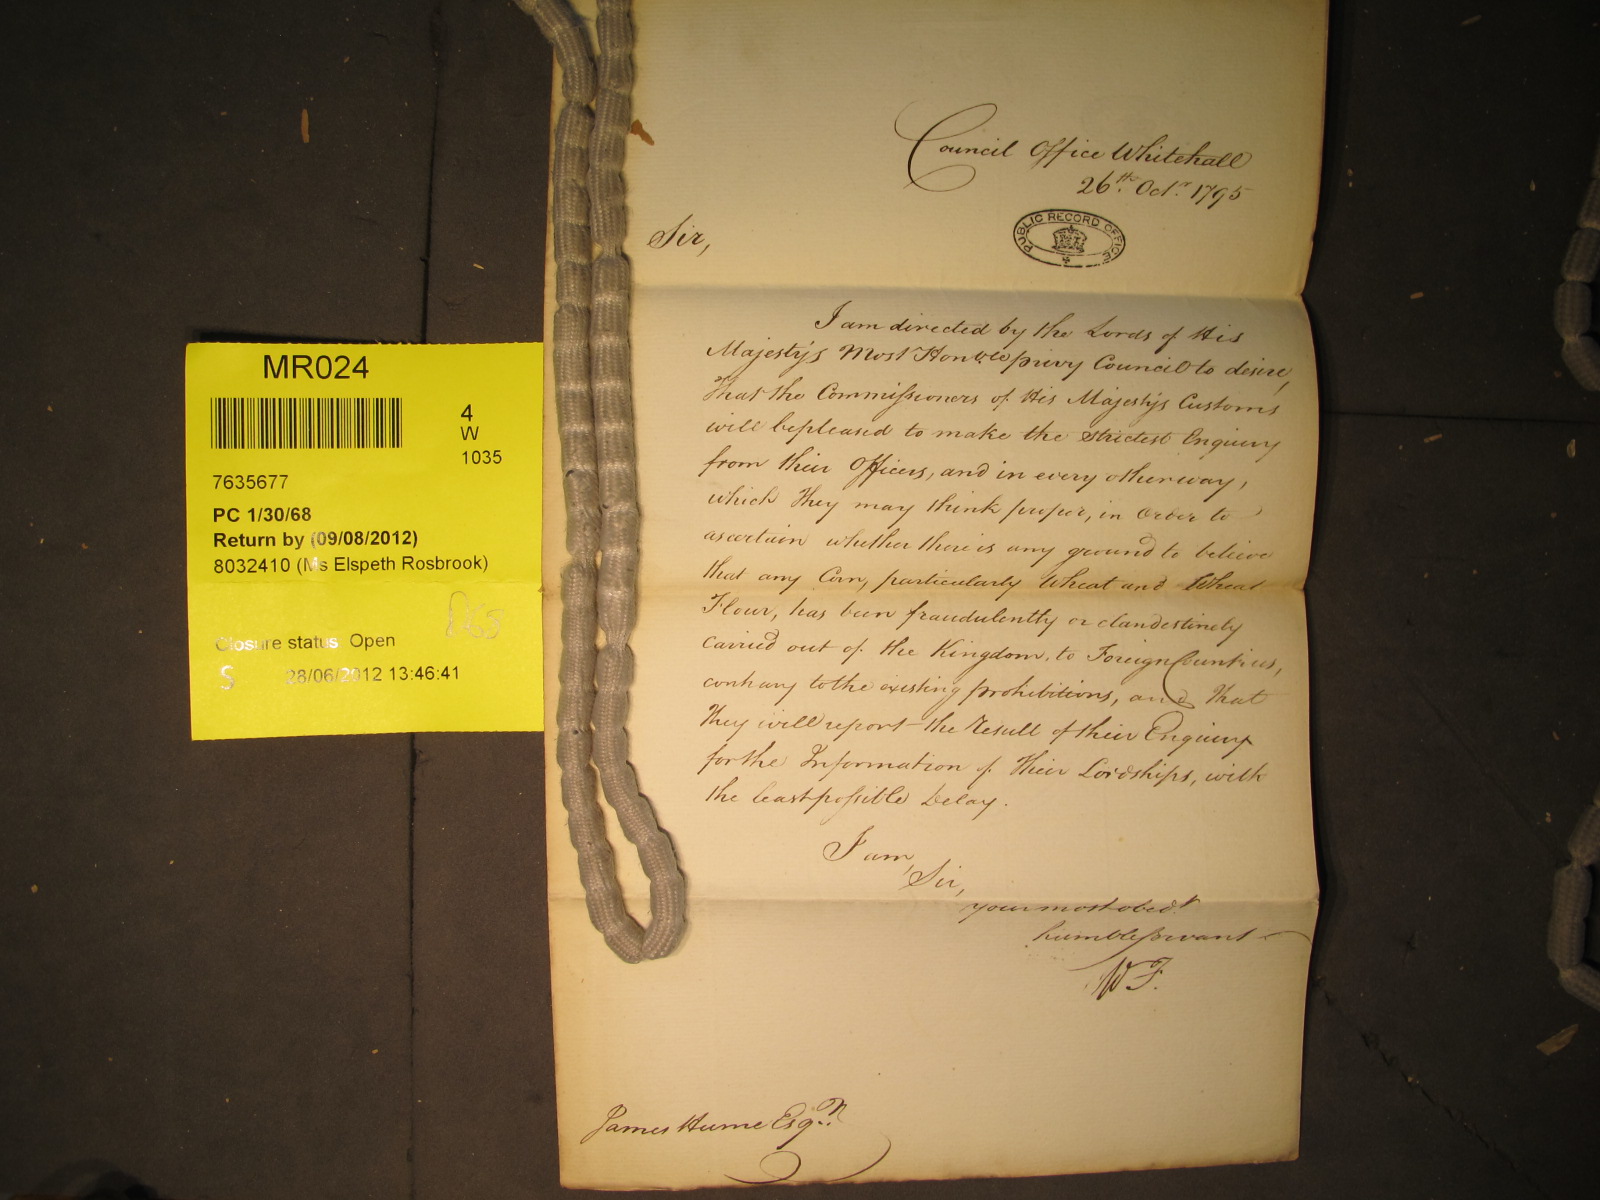 MR024
4
W
1035
7635677
PC 1/30/68
Return by (09/08/2012)
8032410 (Ms Elspeth Rosbrook)
Closure status: Open
S 28/06/2012 13:46:41
Council Office Whitehall
26th. Octr. 1795
PUBLIC RECORD OFFICE
Sir,
I am directed by the Lords of His
Majesty's Most Honble privy Council to desire,
that the Commissioners of His Majesty's Customs
will be pleased to make the strictest Enquiry
from their Officers, and in every other way,
which They may think proper, in Order to
ascertain whether there is any ground to believe
that any Corn, particularly Wheat and Wheat
Flour, has been fraudulently or clandestinely
carried out of the Kingdom, to Foreign Countries,
contrary to the existing prohibitions, and that
They will report the Result of their Enquiry
for the Information of Their Lordships, with
the least possible Delay.
I am,
Sir,
your most obedt
humble Servant
W F.
James Hume Esqr.